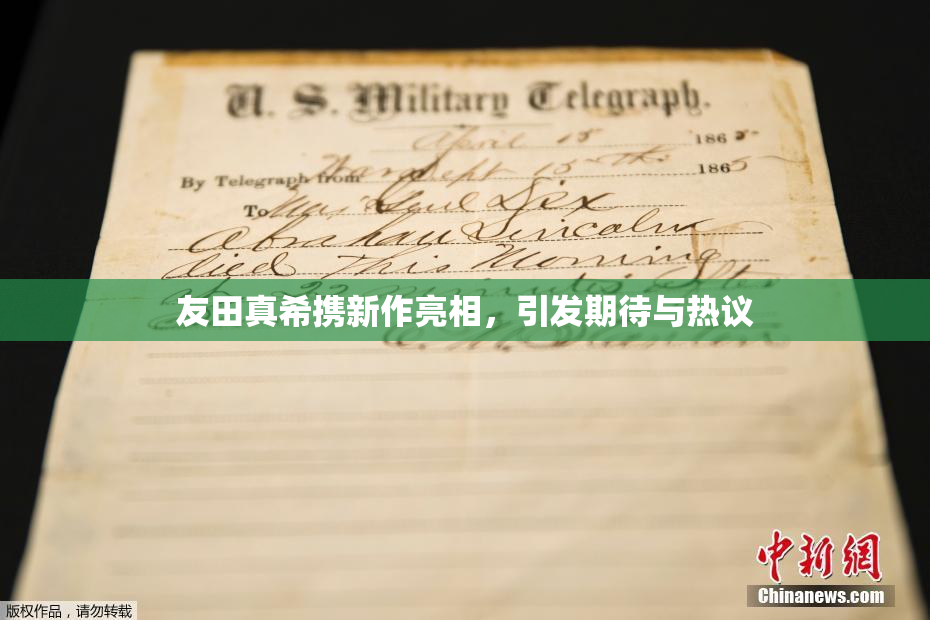 U. S. Military Telegraph.
April 15 1865
By Telegraph from War Dept 15th 1865
To Maj Genl Dix
Abraham Lincoln
died This Morning
at 22 minutes after
友田真希携新作亮相，引发期待与热议
E. M. Stanton
中新網
Chinanews.com
版权作品，请勿转载